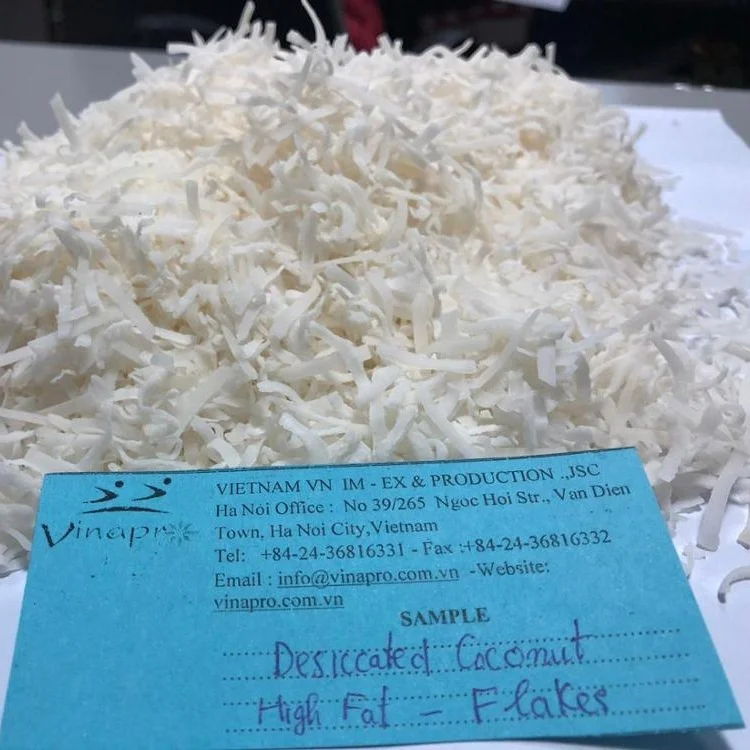 Vinapro
VIETNAM VN IM - EX & PRODUCTION .,JSC
Ha Noi Office : No 39/265 Ngoc Hoi Str., Van Dien
Town, Ha Noi City,Vietnam
Tel: +84-24-36816331 - Fax :+84-24-36816332
Email : info@vinapro.com.vn -Website:
vinapro.com.vn
SAMPLE
Desiccated Coconut
High Fat - Flakes